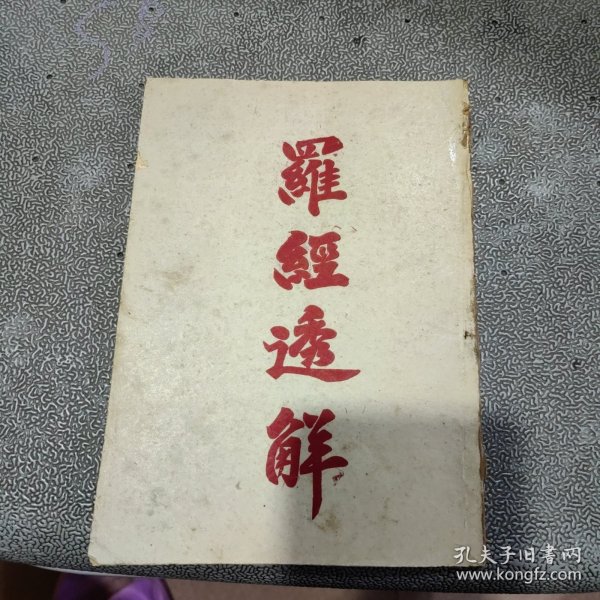 羅經透解
孔夫子旧書网
www.kongfz.com